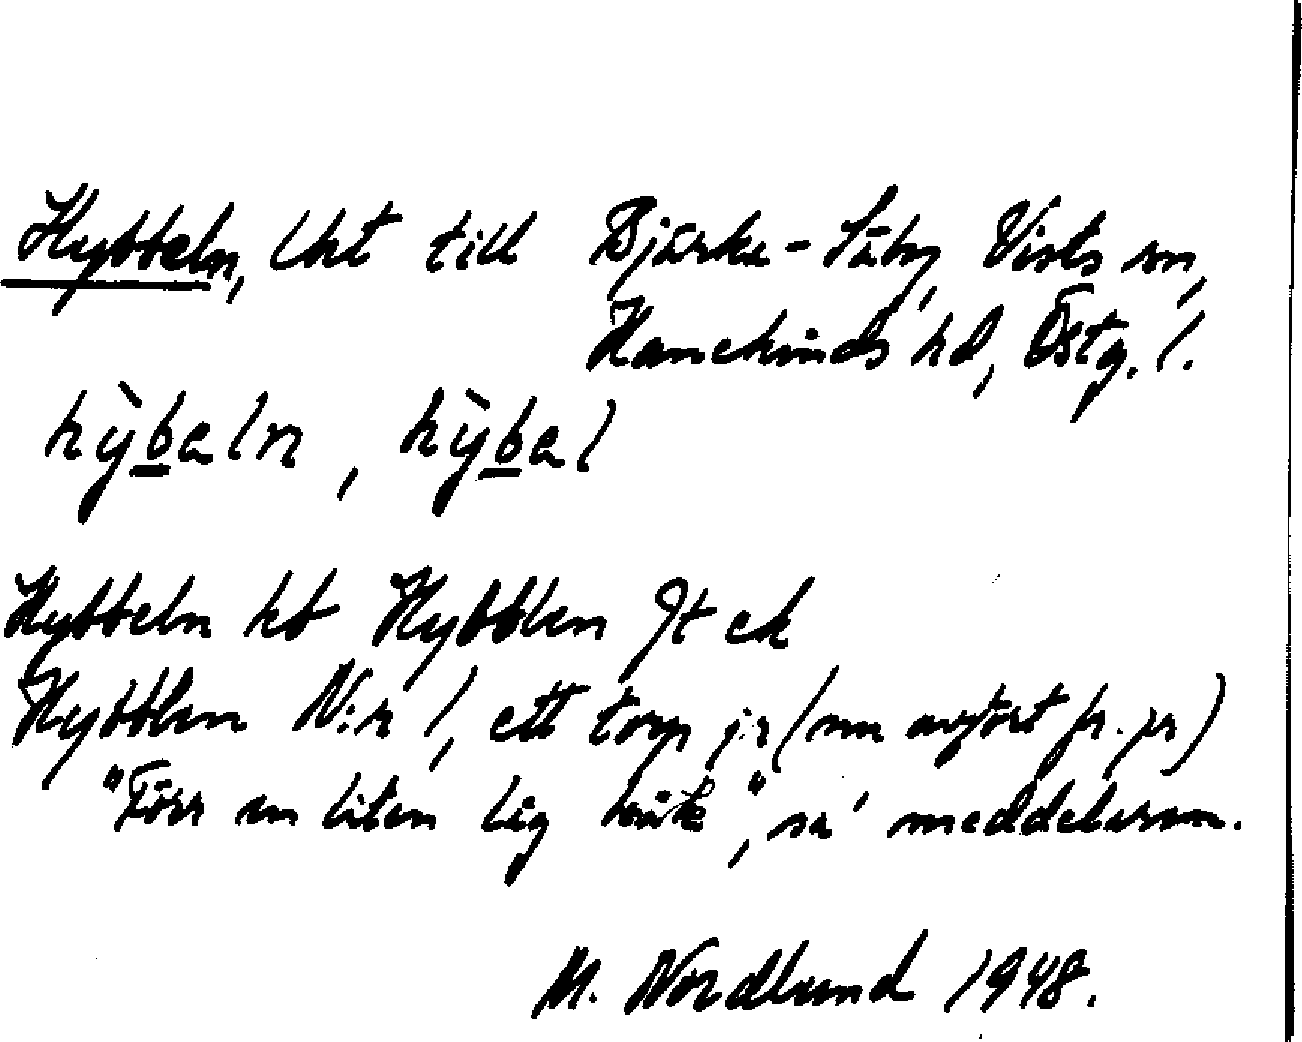 Hybbeln, lht till Bjärka-Säby, Vists sn,
Hanekinds hd, Östg. l.
hỳbaln, hỳbal
Hybbeln hb Hybblen Jt ek
Hybblen N:r 1, ett torp jr (nu avfört fr. jr)
"Förr en liten låg kåk", sa' meddelaren.
M. Nordlund 1948.